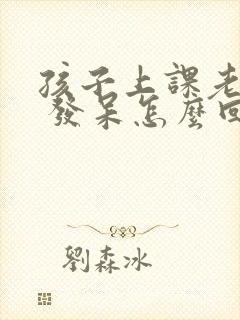 孩子上課老
發呆怎麼回
劉森冰